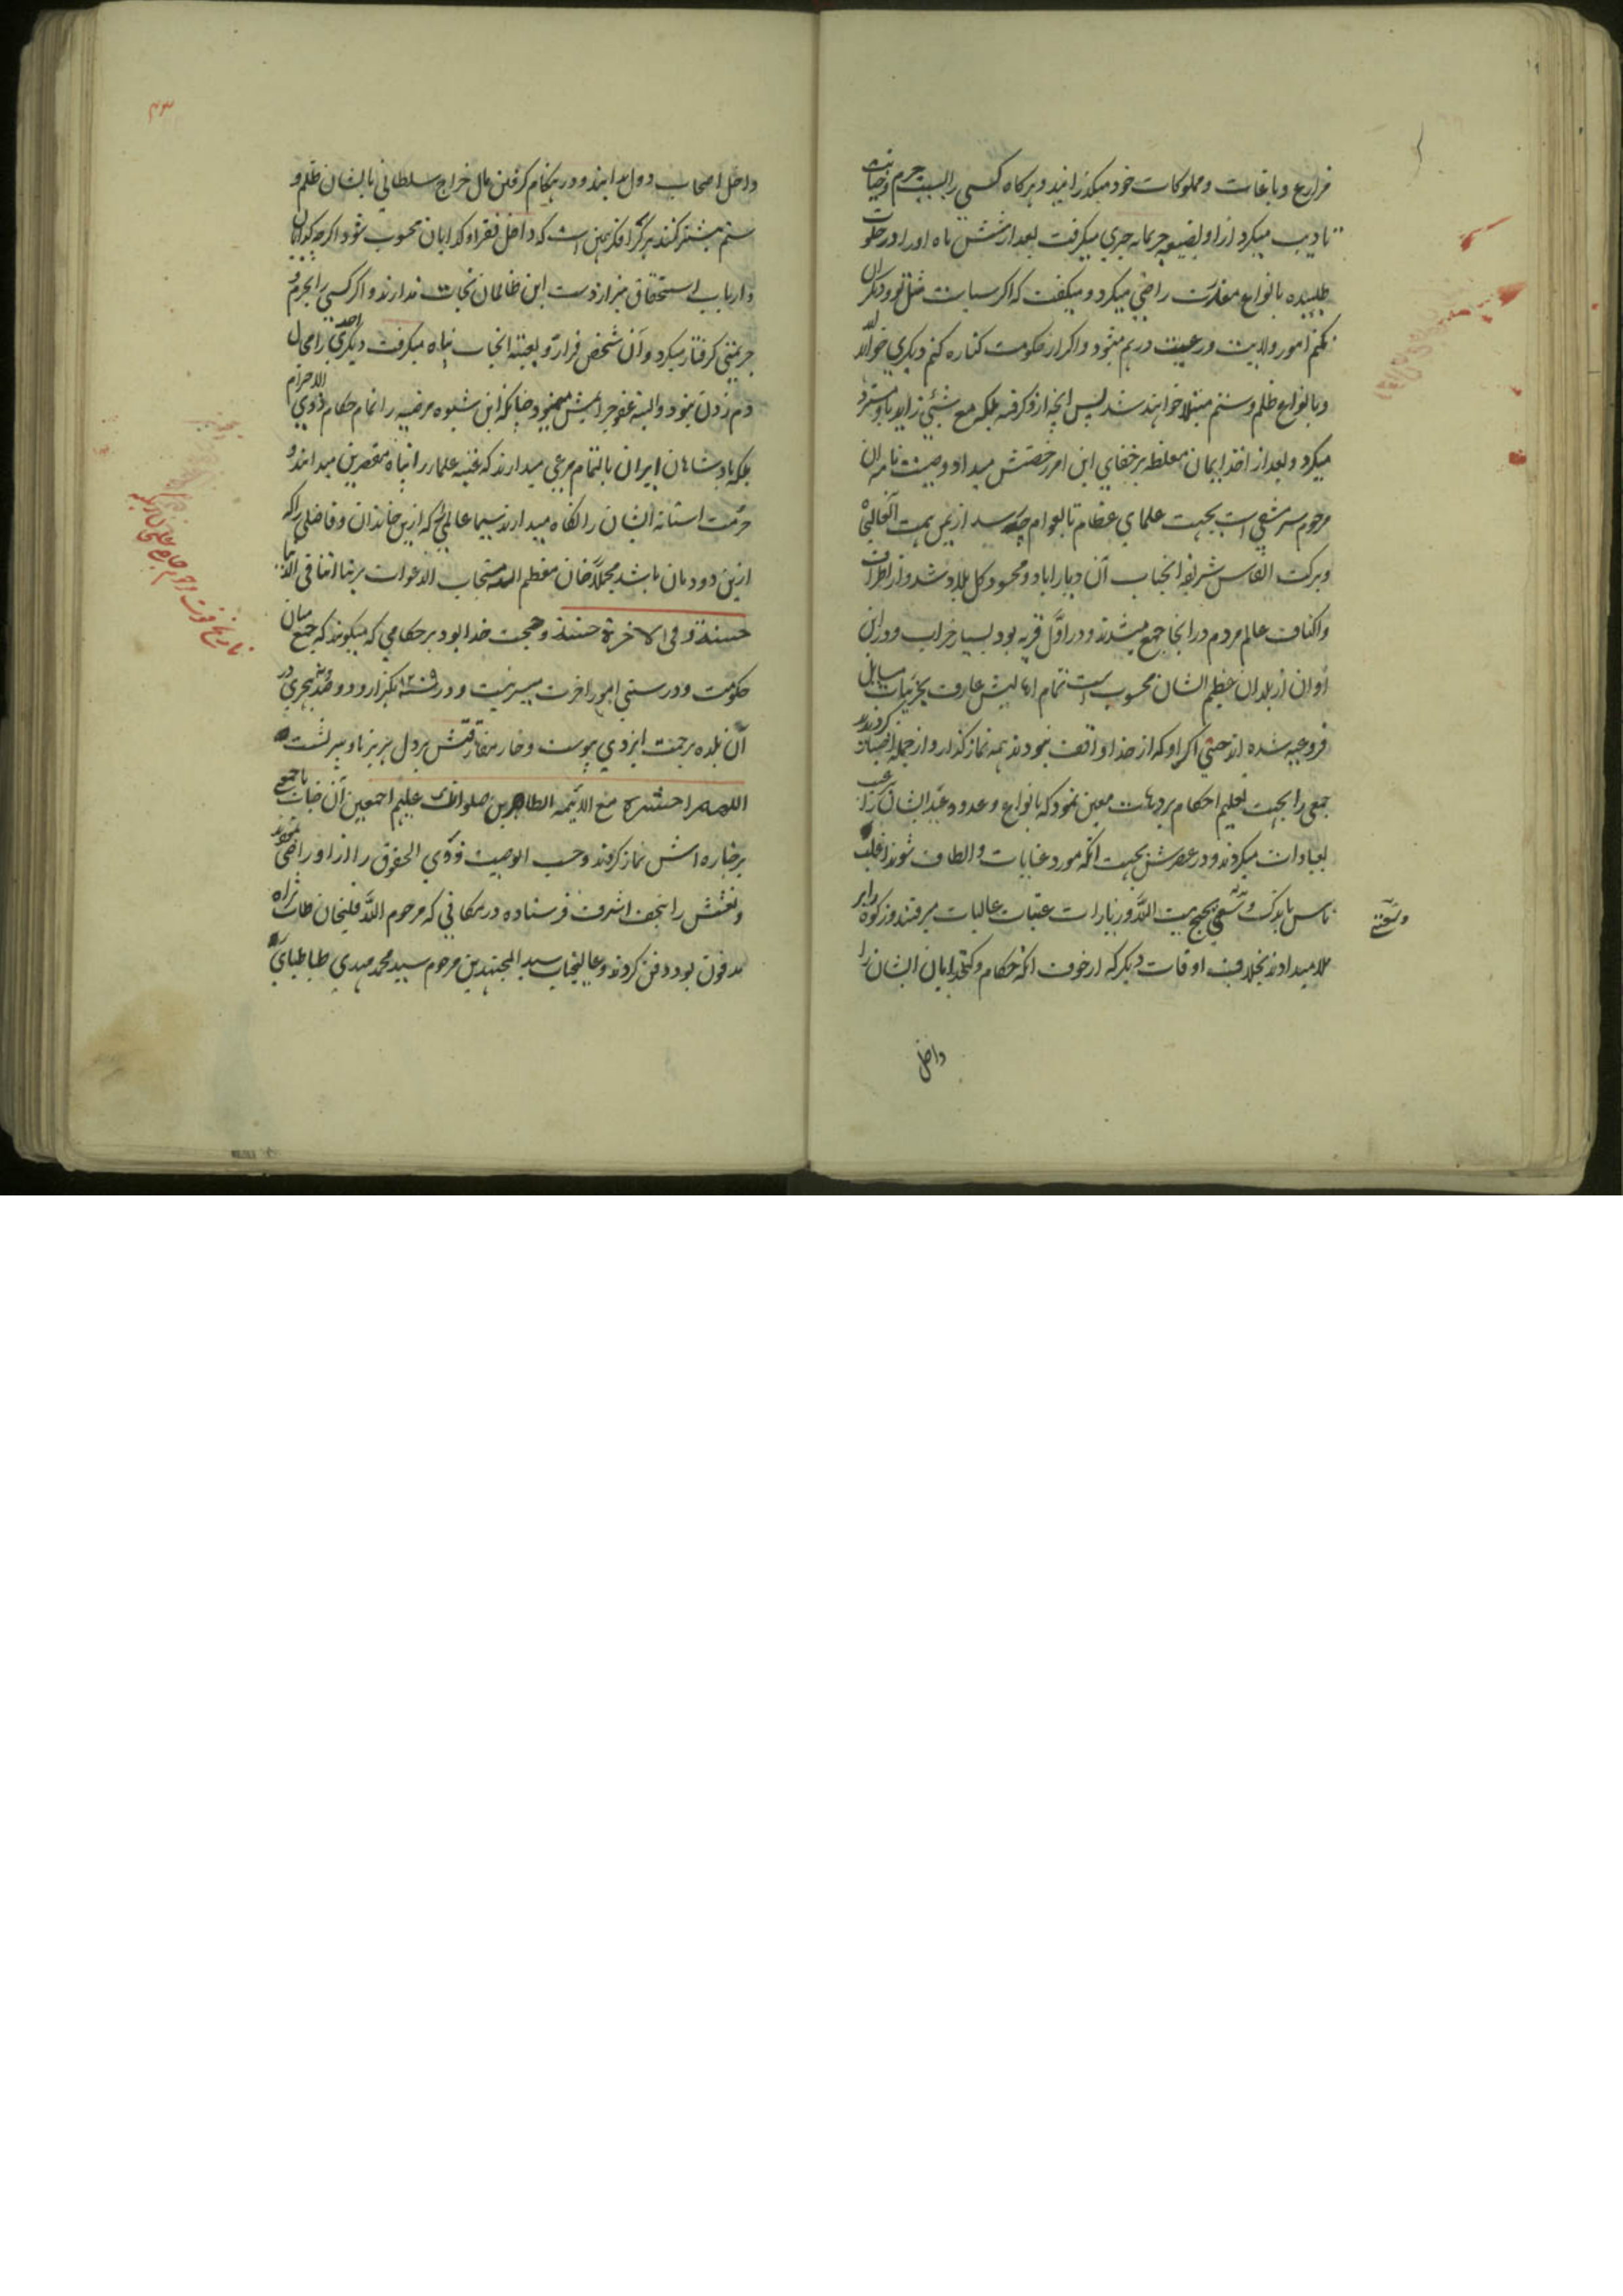 مزارع و باغات و مملوکات خود میگذرانید و هرگاه کسی را بسبب جرم و خیانت
تادیب میکرد از او بصیغه جریمانه چیزی میگرفت بعد از شش ماه او را در خلوت
طلبیده بانواع معذرت راضی میکرد و میگفت که اگر سیاست مثل تو و دیگران
نکنم امور ولایت و رعیت درهم میشود و اگر از حکومت کناره کنم دیگری خواهد
و بانواع ظلم و ستم مبتلا خواهند شد پس آنچه ازو گرفته بلکه مع شیئی زاید باو مسترد
میکرد و بعد از اخذ ایمان مغلظه بر خفای این امر رخصتش میداد و وصیت نامه آن
مرحوم سرمشقی است بجهت علمای عظام تا بعوام چه رسد از یمن همت آنعالیجاه
و برکت انفاس شریفه آنجناب آن دیار آباد و محسود کل بلاد شد و از اطراف
و اکناف عالم مردم در آنجا جمع میشدند و در اول قریه بود بسیار خراب و در این
اوان از بلدان عظیم الشان محسوب است تمام اهالیش عارف بجزئیات مسایل
فروعیه شده اند حتی اکراد که از خدا واقف نبودند همه نماز گذار و از جمله اخیار گردیدند
جمعی را بجهت تعلیم احکام بر دهات معین نمود که بانواع وعد و وعید ایشان را
بعبادات میکردند و در عصرش بجهت آنکه مورد عنایات و الطاف شوند اغلب
ناس بابرکت و سعی بحج بیت الله و زیارات عتبات عالیات میرفتند و زکوة را بر
ملا میدادند بخلاف اوقات دیگر که از خوف آنکه حکام و کدخدایان ایشان را
داخل
داخل اصحاب دول دانند و در هنگام گرفتن مال خراج سلطانی بایشان ظلم و
ستم بیشتر کنند هر کرا فکر همین است که داخل فقرا و گدایان محسوب شود اگرچه گدایان
و ارباب استحقاق نیز از دست این ظالمان نجات ندارند و اگر کسی را بجرم و
جریمتی گرفتار میکرد و آن شخص فرار و بعتبه آنجناب پناه میگرفت احدی دیگر را مجال
دم زدن نبود و البته عفو جرایمش مینمود چنانکه این شیوه مرضیه را تمام حکام ذوی الاحترام
بلکه پادشاهان ایران بالتمام مرعی میدارند که عتبه علما را پناه مقصرین میدانند و
حرمت آستانه ایشان را نگاه میدارند سیما عالمی را که ازین خاندان و فاضلی را که
ازین دودمان باشد مجملا خان معظم الیه مستجاب الدعوات ربنا اتنا فی الدنیا
حسنة و فی الاخرة حسنة و حجت خدا بود بر حکامی که میگویند که جمع میان
حکومت و درستی امور آخرت میسر نیست و در سنه ۱۲۰۹ یکهزار و دوصد و نه هجری در
آن بلده برحمت ایزدی پیوست و خار مفارقتش بر دل هر برنا و پیر نشست
اللهم احشره مع الائمه الطاهرین صلوات الله علیهم اجمعین آن جناب با جمعی
بر جنازه اش نماز کردند و حسب الوصیت ذوی الحقوق را از او راضی نمودند
و نعشش را بنجف اشرف فرستاده در مکانی که مرحوم الله قلیخان طاب ثراه
مدفون بود دفن کردند و عالیجناب سید المجتهدین مرحوم سید محمد مهدی طباطبایی